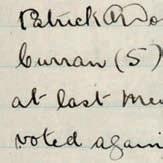 Patrick
Curran (S)
at last
voted again